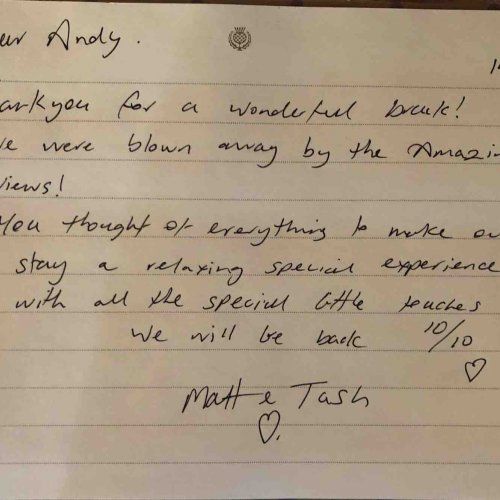 ear Andy.
14
ankyou for a wonderful break!
We were blown away by the Amazin
views!
You thought of everything to make ou
stay a relaxing special experience
with all the special little touches
We will be back 10/10
♡
Matt & Tash
♡.